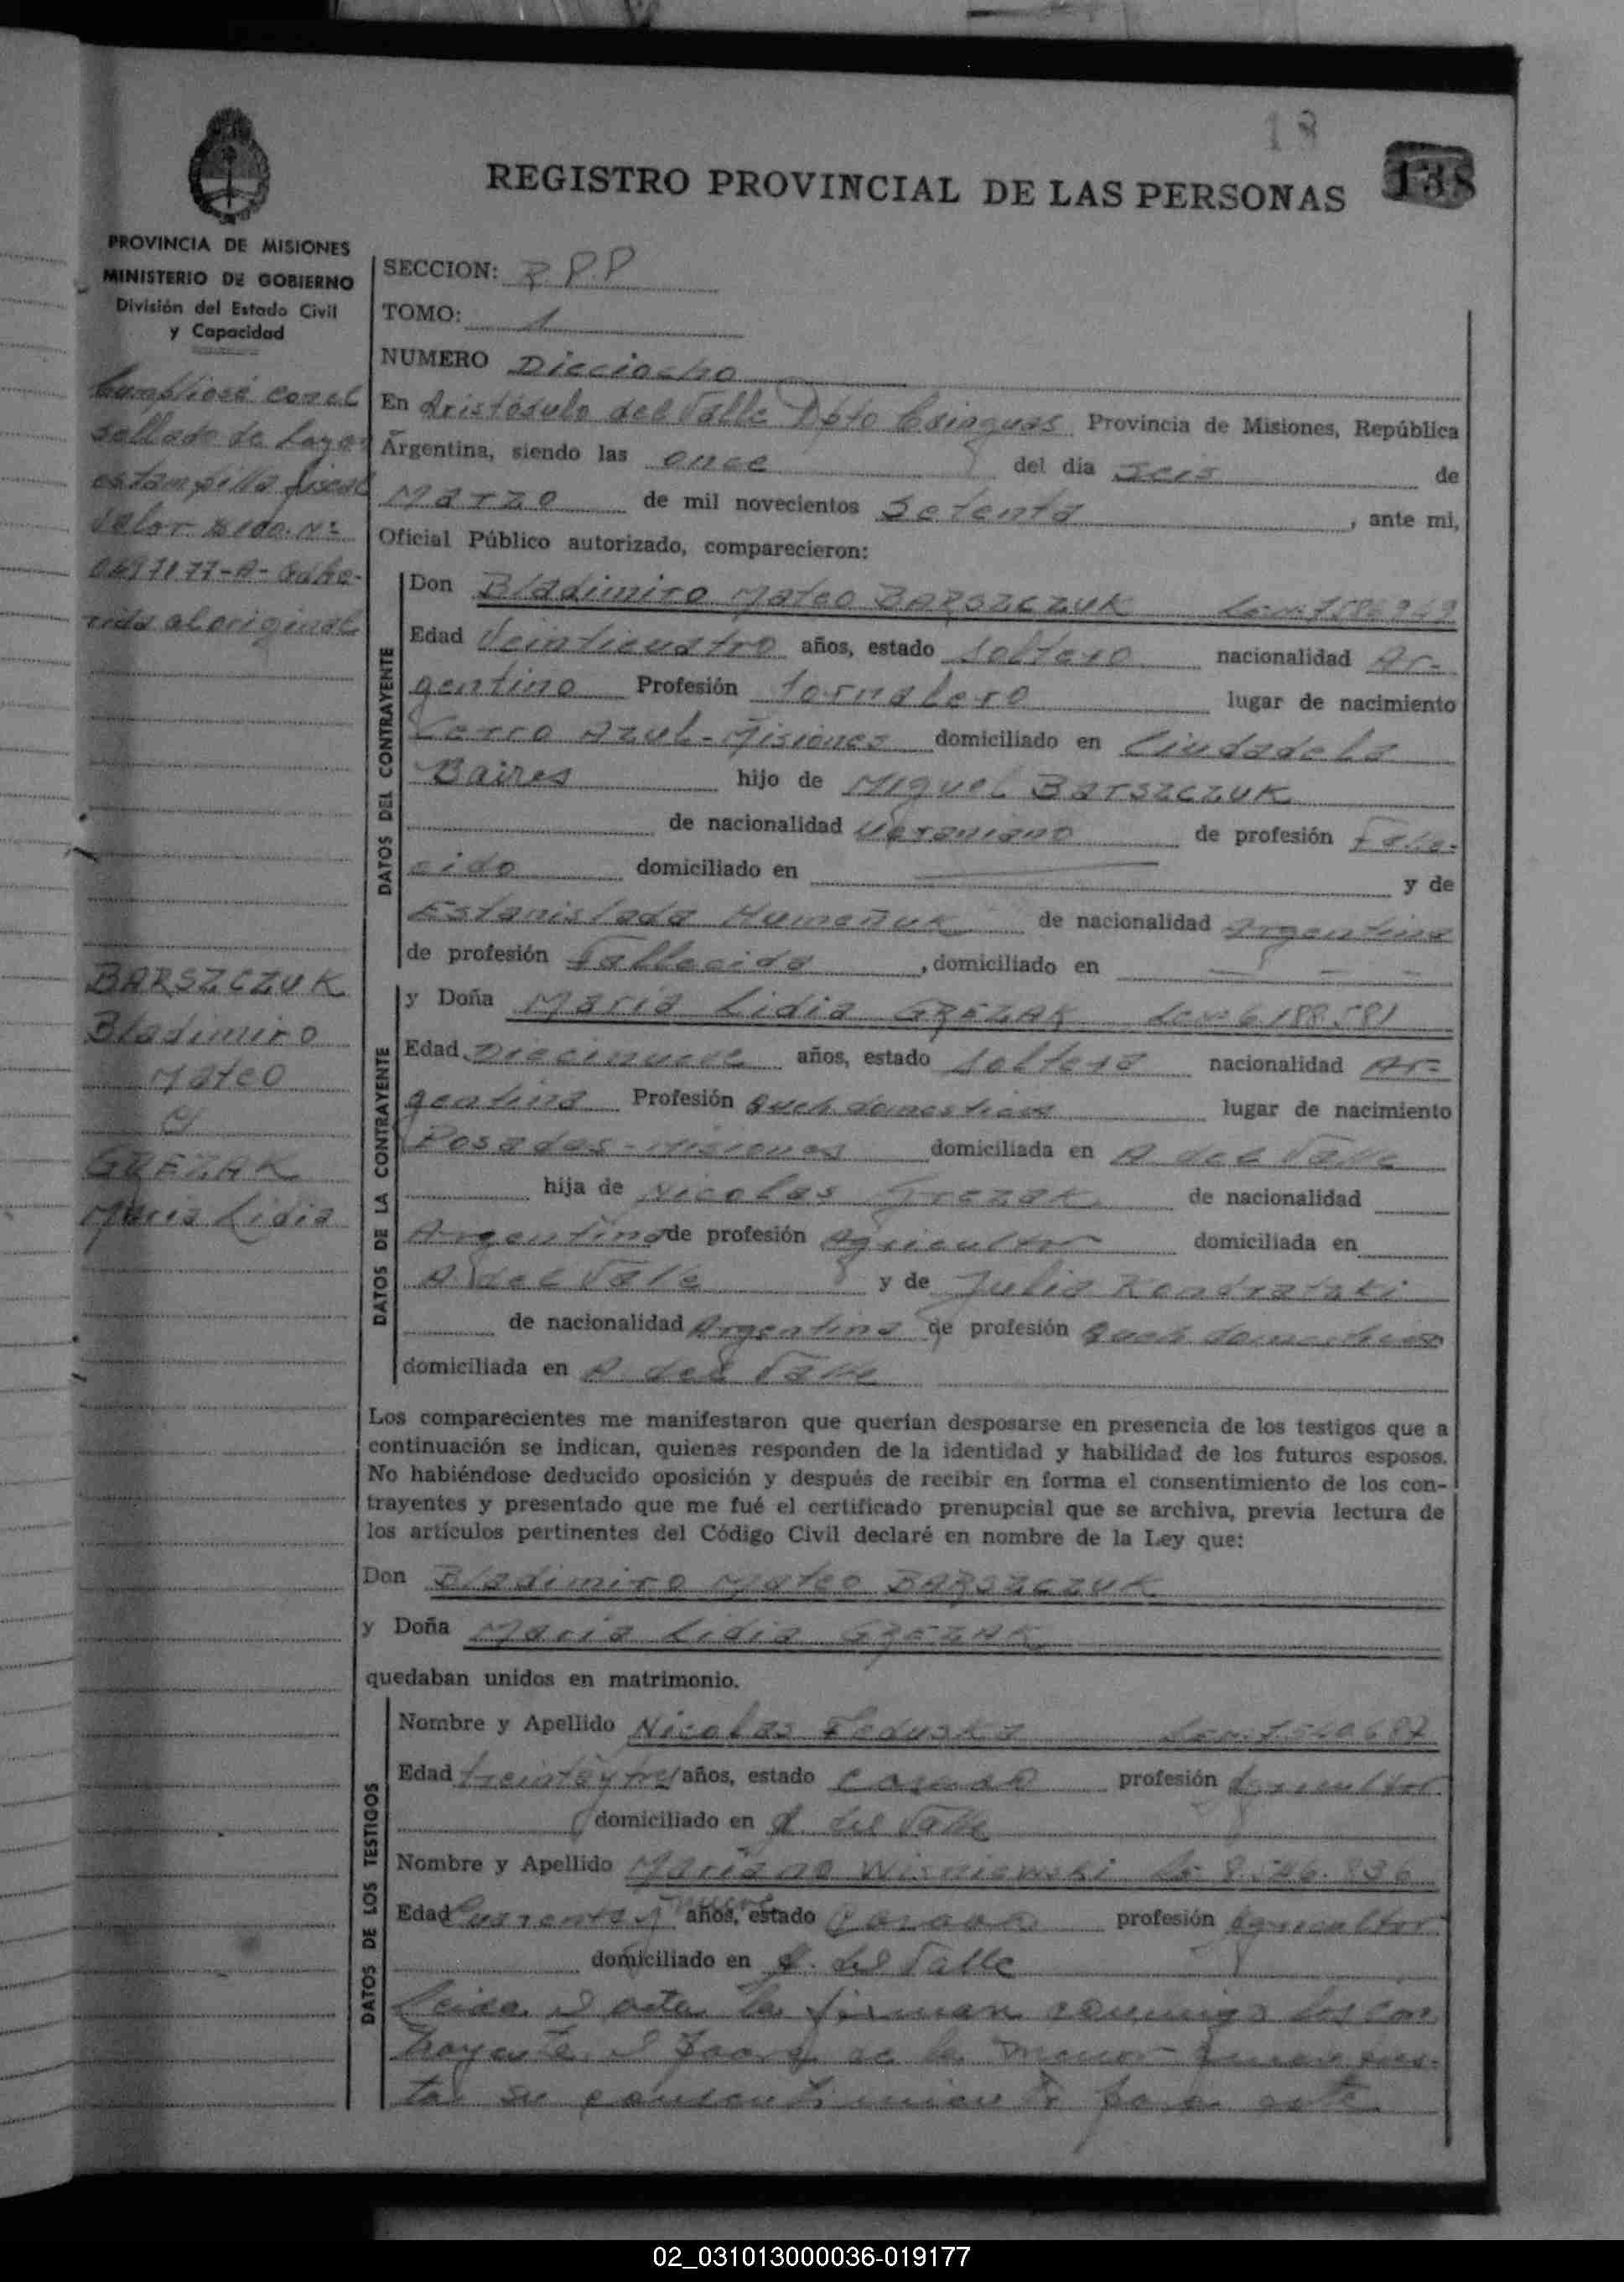 18
138
REGISTRO PROVINCIAL DE LAS PERSONAS
PROVINCIA DE MISIONES
MINISTERIO DE GOBIERNO
División del Estado Civil
y Capacidad
Cumpliose con el
sellado de Ley en
estampilla fiscal
valor N°
adhe-
rida al original
BARSZCZUK
Bladimiro
Mateo
y
GREZAK
Maria Lidia
SECCION: R P.P
TOMO: 1
NUMERO Dieciocho
En Aristóbulo del Valle Dpto Cainguas Provincia de Misiones, República
Argentina, siendo las once del día seis de
Marzo de mil novecientos Setenta, ante mi,
Oficial Público autorizado, comparecieron:
DATOS DEL CONTRAYENTE
Don Bladimiro Mateo BARSZCZUK
Edad Veinticuatro años, estado Soltero nacionalidad Ar-
gentino Profesión Jornalero lugar de nacimiento
Cerro Azul-Misiones domiciliado en Ciudadela
Baires hijo de Miguel BARSZCZUK
de nacionalidad Ucraniano de profesión Falle-
cido domiciliado en y de
Estanislada Humeñuk de nacionalidad Argentina
de profesión Fallecida, domiciliado en
DATOS DE LA CONTRAYENTE
y Doña Maria Lidia GREZAK 6188581
Edad Diecinueve años, estado Soltera nacionalidad Ar-
gentina Profesión Queh. domesticos lugar de nacimiento
Posadas-Misiones domiciliada en A. del Valle
hija de Nicolas Grezak de nacionalidad
Argentino de profesión Agricultor domiciliada en
A del Valle y de Julia Kondratski
de nacionalidad Argentina de profesión Queh domesticos
domiciliada en A. del Valle
Los comparecientes me manifestaron que querían desposarse en presencia de los testigos que a
continuación se indican, quienes responden de la identidad y habilidad de los futuros esposos.
No habiéndose deducido oposición y después de recibir en forma el consentimiento de los con-
trayentes y presentado que me fué el certificado prenupcial que se archiva, previa lectura de
los artículos pertinentes del Código Civil declaré en nombre de la Ley que:
Don Bladimiro Mateo BARSZCZUK
y Doña Maria Lidia GREZAK
quedaban unidos en matrimonio.
DATOS DE LOS TESTIGOS
Nombre y Apellido Nicolas Feduska
Edad treinta y tres años, estado casado profesión Agricultor
domiciliado en A. del Valle
Nombre y Apellido Mariano Wisniewski
Edad Cuarenta y nueve años, estado Casado profesión Agricultor
domiciliado en A. del Valle
Leida el acta la firman conmigo los con
trayentes el padre de la menor
tar su consentimiento para este
02_031013000036-019177